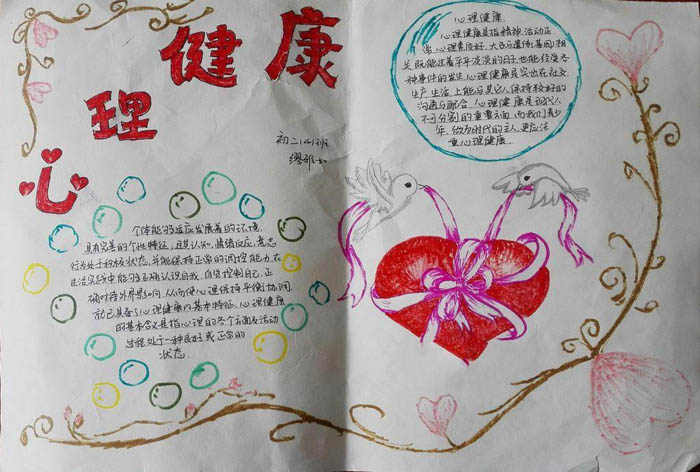 心理健康
初二(4)班
缪雅如
个体能够适应发展着的环境,
具有完善的个性特征,且其认知,情绪反应,意志
行为处于积极状态,并能保持正常的调控能力,在
生活实践中能够正确认识自我,自觉控制自己,正
确对待外界影响,从而使心理保持平衡协调,
就已具备了心理健康的基本特征,心理健康
的基本含义是指心理的各个方面及活动
过程处于一种良好或正常的
状态.
心理健康
心理健康是指精神活动正
常,心理素质好,大多与遗传(基因)相
关,既能过着平平淡淡的日子,也能经受各
种事件的发生,心理健康突出在社交
生产,生活上能与其它人保持较好的
沟通与配合,心理健康是现代人
不可分割的重要方面,而我们青少
年,做为时代的主人,更应注
重心理健康.